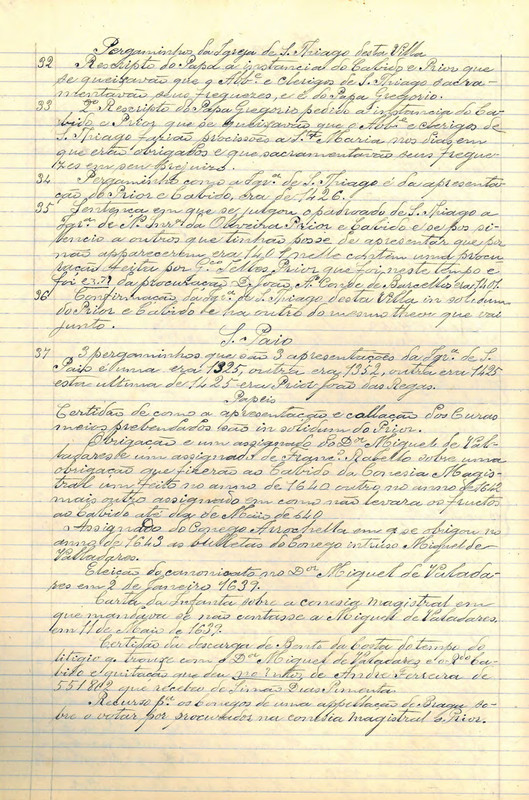 Pergaminhos da Igreja de S. Thiago desta Villa
32 Rescripto do Papa á instancia do Cabido e Prior que
se queixavão que o Abb.e e clerigos de S. Thiago sacra-
mentavão seus freguezes, e é do Papa Gregorio.
33 D.o Rescripto do Papa Gregorio pedido á instancia do Ca-
bido e Prior que se queixavão que o Abb.e e clerigos de
S. Thiago fazião procissões a S.ta Maria nos dias em
que erão obrigados e que sacramentavão seus fregue-
zes em seu prejuizo.
34 Pergaminho como a Igr.a de S. Thiago é da apresenta-
ção do Prior e Cabido, era de 1426.
35 Sentença em que se julgou o padroado de S. Thiago a
Igr.a de N. Snr.a da Oliveira Prior e Cabido e se pos si-
lencio a outros que tinhão posse de apresentar que por
não apparecerem era 1401 nelle contém uma procu-
ração feita por G. Telles, Prior que foi, neste tempo e
foi da procuração D. João, A. Conde de Barcellos era 1401.
36 Confirmação da Igr.a de S. Thiago desta Villa in solidum
do Prior e Cabido e ha outro do mesmo theor que vai
junto.
S. Paio
37 3 pergaminhos que são 3 apresentações da Igr.a de S.
Paio e uma era 1325, outra era 1352, outra era 1425
esta ultima de 1425 era Prior João das Regas.
Papeis
Certidão de como a apresentação e collação dos Curas
meios prebendados são in solidum do Prior.
Obrigação e um assignado do D.or Miguel de Val-
ladares e um assignad. de Franc.o Rabello sobre uma
obrigação que fizerão ao Cabido da Conesia Magis-
tral um feito no anno de 1640 outro no anno de 1642
mais outro assignado em como não levara os fructos
ao Cabido até dia de Maio de 640.
Assignado do Conego Arrochella em q se obrigou no
anno de 1643 as bulletas do Conego intruso Miguel de
Valladares.
Eleição do canonicato no D.or Miguel de Valada-
res em 2 de Janeiro 1639.
Carta da Infanta sobre a conesia magistral em
que mandava se não contasse a Miguel de Valadares,
em 11 de Maio de 1639.
Certidão da descarga de Bento da Costa do tempo do
litigio q. trouxe com o D.or Miguel de Valadares e o R.do Ca-
bido e quitação que deu de Andre Ferreira de
551802 que recebeo de Simão Dias Pimenta.
Recurso p.a os Conegos de uma appellação de Braga so-
bre o votar por procurados na conesia magistral o Prior.